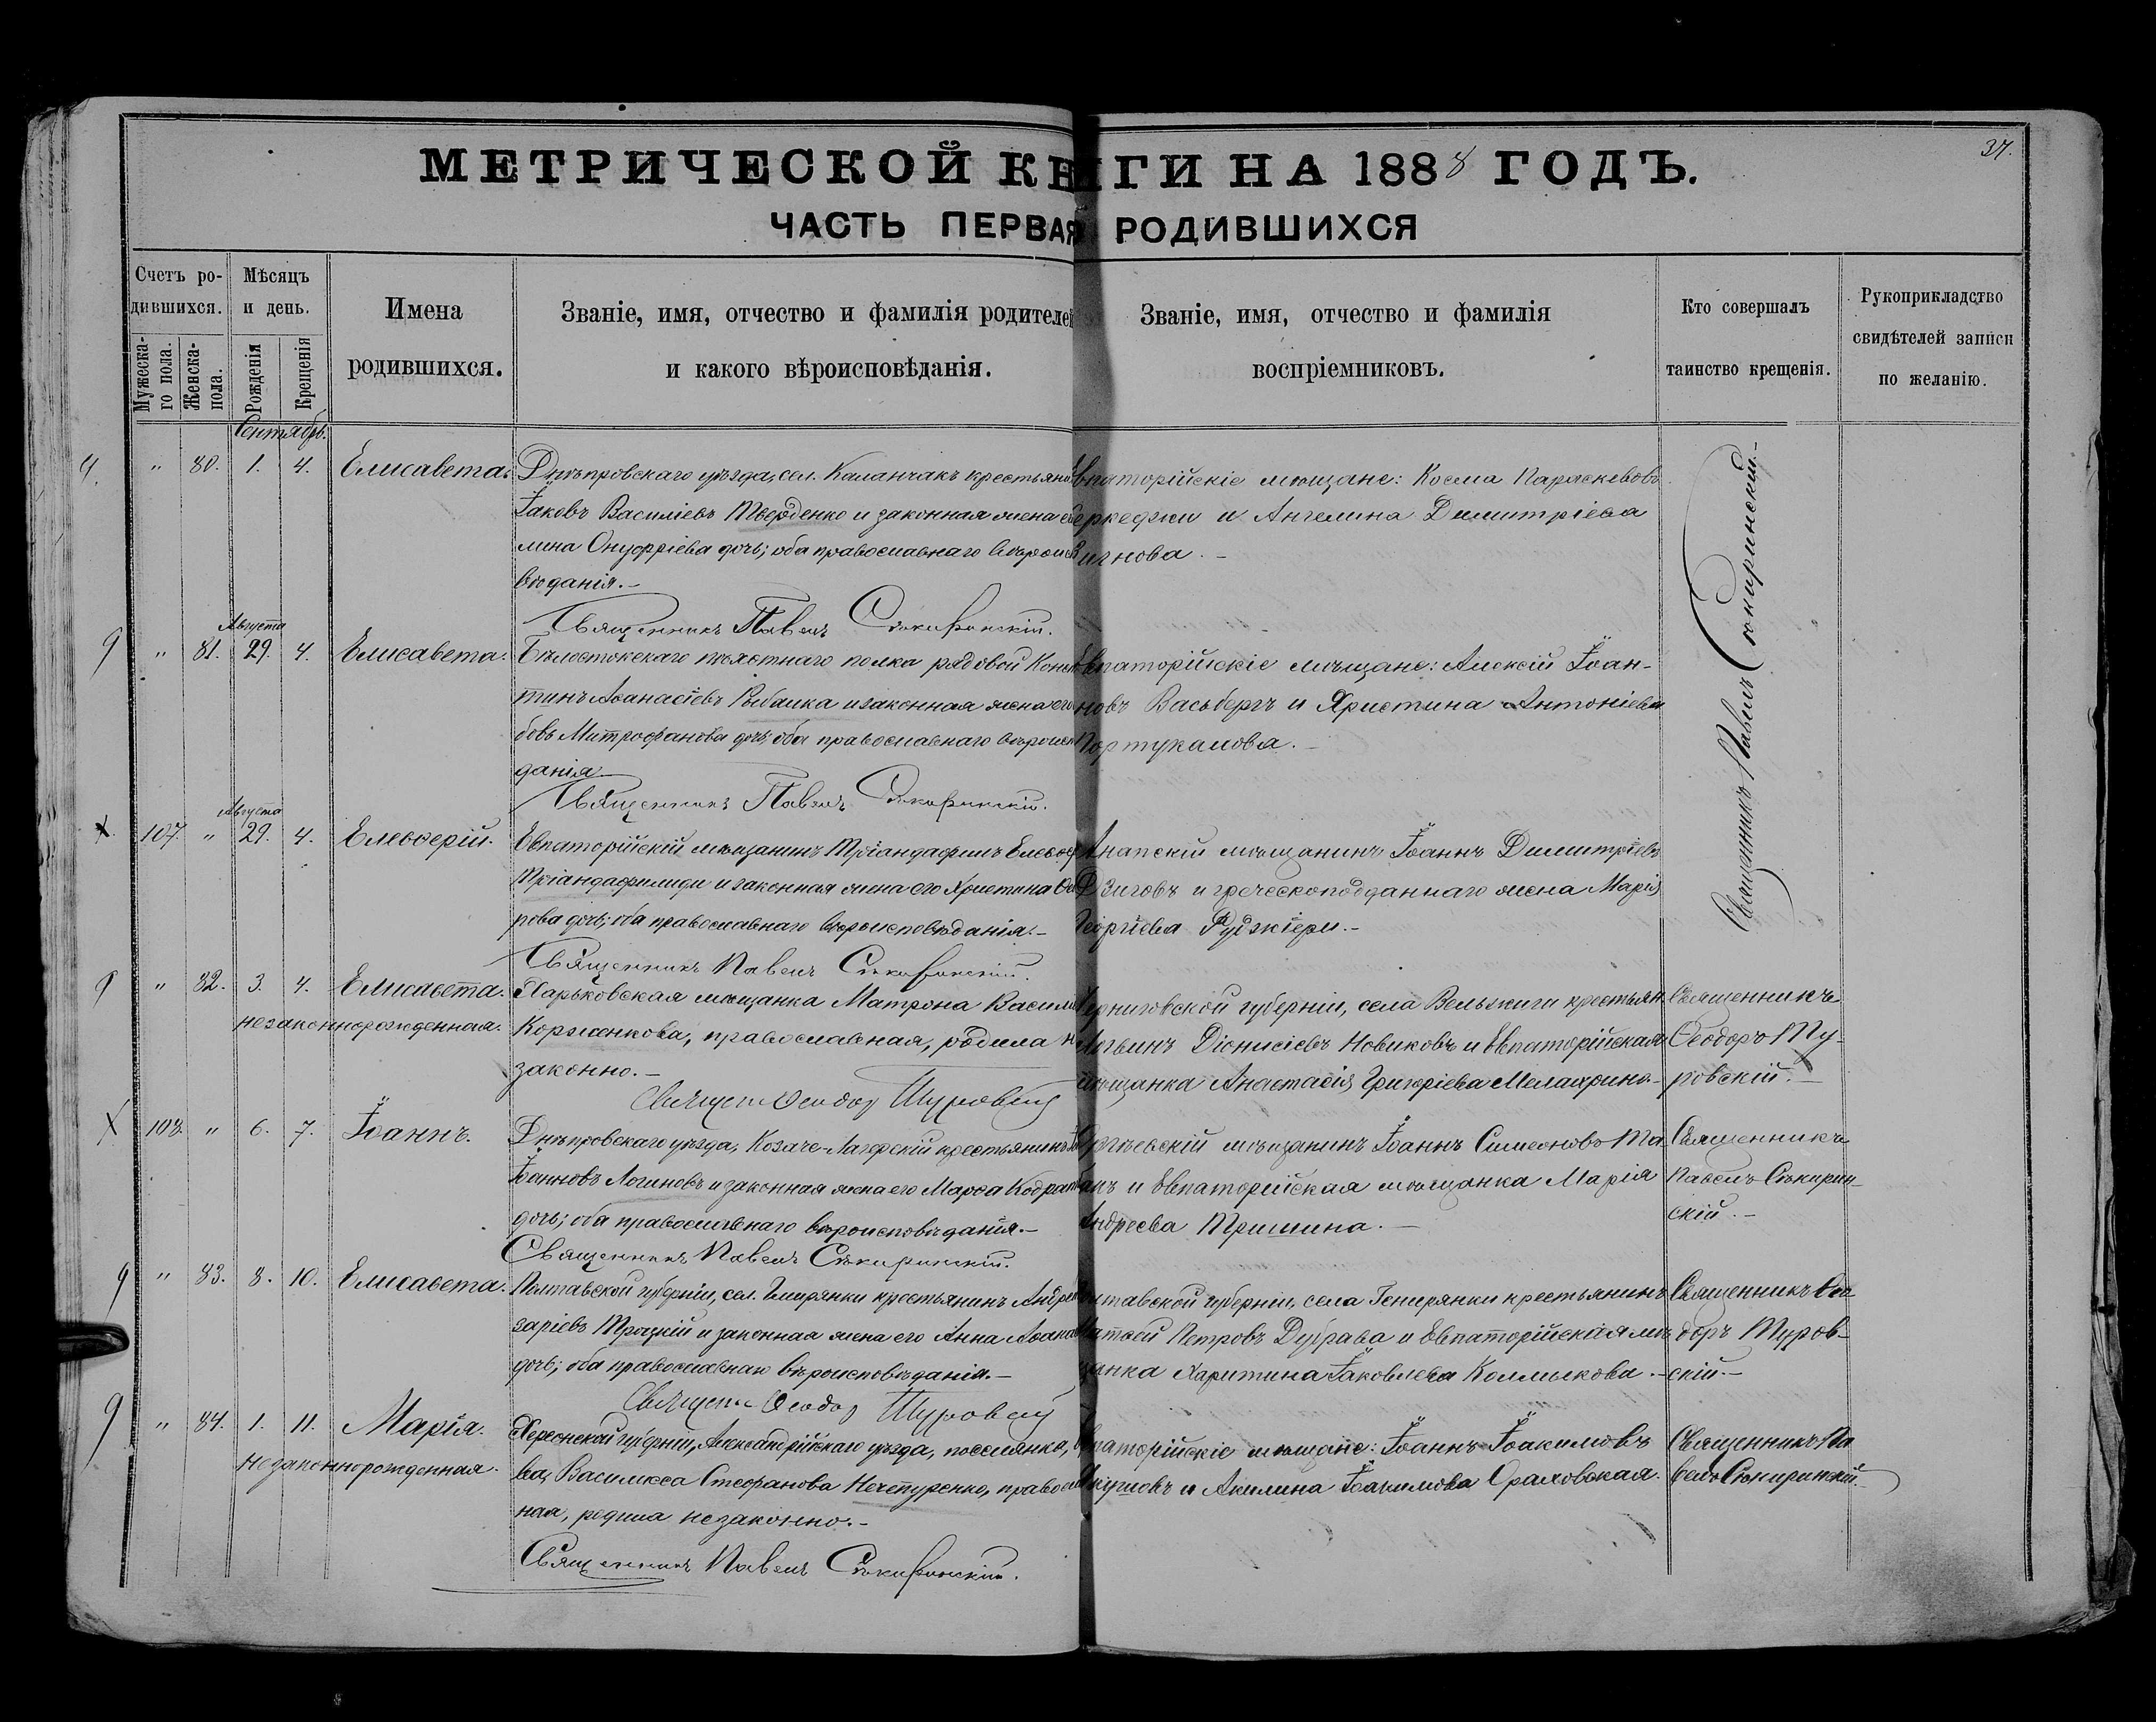 37.
МЕТРИЧЕСКОЙ КНИГИ НА 1888 ГОДЪ.
ЧАСТЬ ПЕРВАЯ РОДИВШИХСЯ
Счетъ ро-
дившихся.
Мужеска-
го пола.
Женска-
пола.
Мѣсяцъ
и день.
Рожденія
Крещенія
Имена
родившихся.
Званіе, имя, отчество и фамилія родителей
и какого вѣроисповѣданія.
Званіе, имя, отчество и фамилія
воспріемниковъ.
Кто совершалъ
таинство крещенія.
Рукоприкладство
свидѣтелей записи
по желанію.
Сентябрь.
" 80. 1. 4. Елисавета.
Днѣпровскаго уѣзда, сел. Каланчакъ крестьяни
Іаковъ Василіевъ Тверденко и законная жена е
лина Онуфріева дочь; оба православнаго вѣроисп
вѣданія.–
Священникъ Павелъ Сѣкиринскій.
впаторійскіе мѣщане: Косма Параскевовъ
еркеджи и Ангелина Димитріева
игнова.–
Священникъ Павелъ Сѣкиринскій.–
Августа
" 81. 29. 4. Елисавета.
Бѣлостокскаго пѣхотнаго полка рядовой Конст
тинъ Аѳанасіевъ Рыбалка и законная жена его
бовь Митрофанова дочь; оба православнаго вѣроисп
данія.
Священникъ Павелъ Сѣкиринскій.
Евпаторійскіе мѣщане: Алексій Іоан-
новъ Васьбергъ и Христина Антоніева
Портукалова.–
Августа
107. " 29. 4. Елевѳерій.
Евпаторійскій мѣщанинъ Тріандафилъ Елевѳер
Тріандафилиди и законная жена его Христина Ѳео
рова дочь; оба православнаго вѣроисповѣданія.–
Священникъ Павелъ Сѣкиринскій.
Анапскій мѣщанинъ Іоаннъ Димитріевъ
Дзиговъ и греческоподданнаго жена Марія
Георгіева
" 82. 3. 4. Елисавета.
незаконнорожденная.
Харьковская мѣщанка Матрона Васил
Корженкова, православная, родила н
законно.–
Священ. Ѳеодоръ Туровскій
Черниговской губерніи, села крестьян.
Логвинъ Діонисіевъ Новиковъ и Евпаторійская
мѣщанка Анастасія Григоріева
Священникъ
Ѳеодоръ Ту-
ровскій.–
108. " 6. 7. Іоаннъ.
Днѣпровскаго уѣзда, Козаче-Лагерскій крестьянинъ
Іоанновъ Логиновъ и законная жена его Марѳа Кодрат
дочь; оба православнаго вѣроисповѣданія.–
Священникъ Павелъ Сѣкиринскій.
мѣщанинъ Іоаннъ Симеоновъ Та
анъ и Евпаторійская мѣщанка Марія
Андреева Тришина.–
Священникъ
Павелъ Сѣкирин-
скій.–
" 83. 8. 10. Елисавета.
Полтавской губерніи, сел. крестьянинъ Андрей
заріевъ Троцкій и законная жена его Анна Аѳана
дочь; оба православнаго вѣроисповѣданія.–
Священ. Ѳеодоръ Туровскій
Полтавской губерніи, села крестьянинъ
Матѳей Петровъ Дубрава и Евпаторійская мѣ-
щанка Харитина Іаковлева Колмыкова.–
Священникъ Ѳео
доръ Туров-
скій.–
" 84. 1. 11. Марія.
Незаконнорожденная.
Херсонской губерніи, Александрійскаго уѣзда, поселянка,
ва, Василисса Стефанова Нечепуренко, правосла
ная, родила незаконно.–
Священникъ Павелъ Сѣкиринскій.
впаторійскіе мѣщане: Іоаннъ Іоакимовъ
Якушовъ и Акилина Іоакимова Ораховская.
Священникъ Па
велъ Сѣкиринскій.